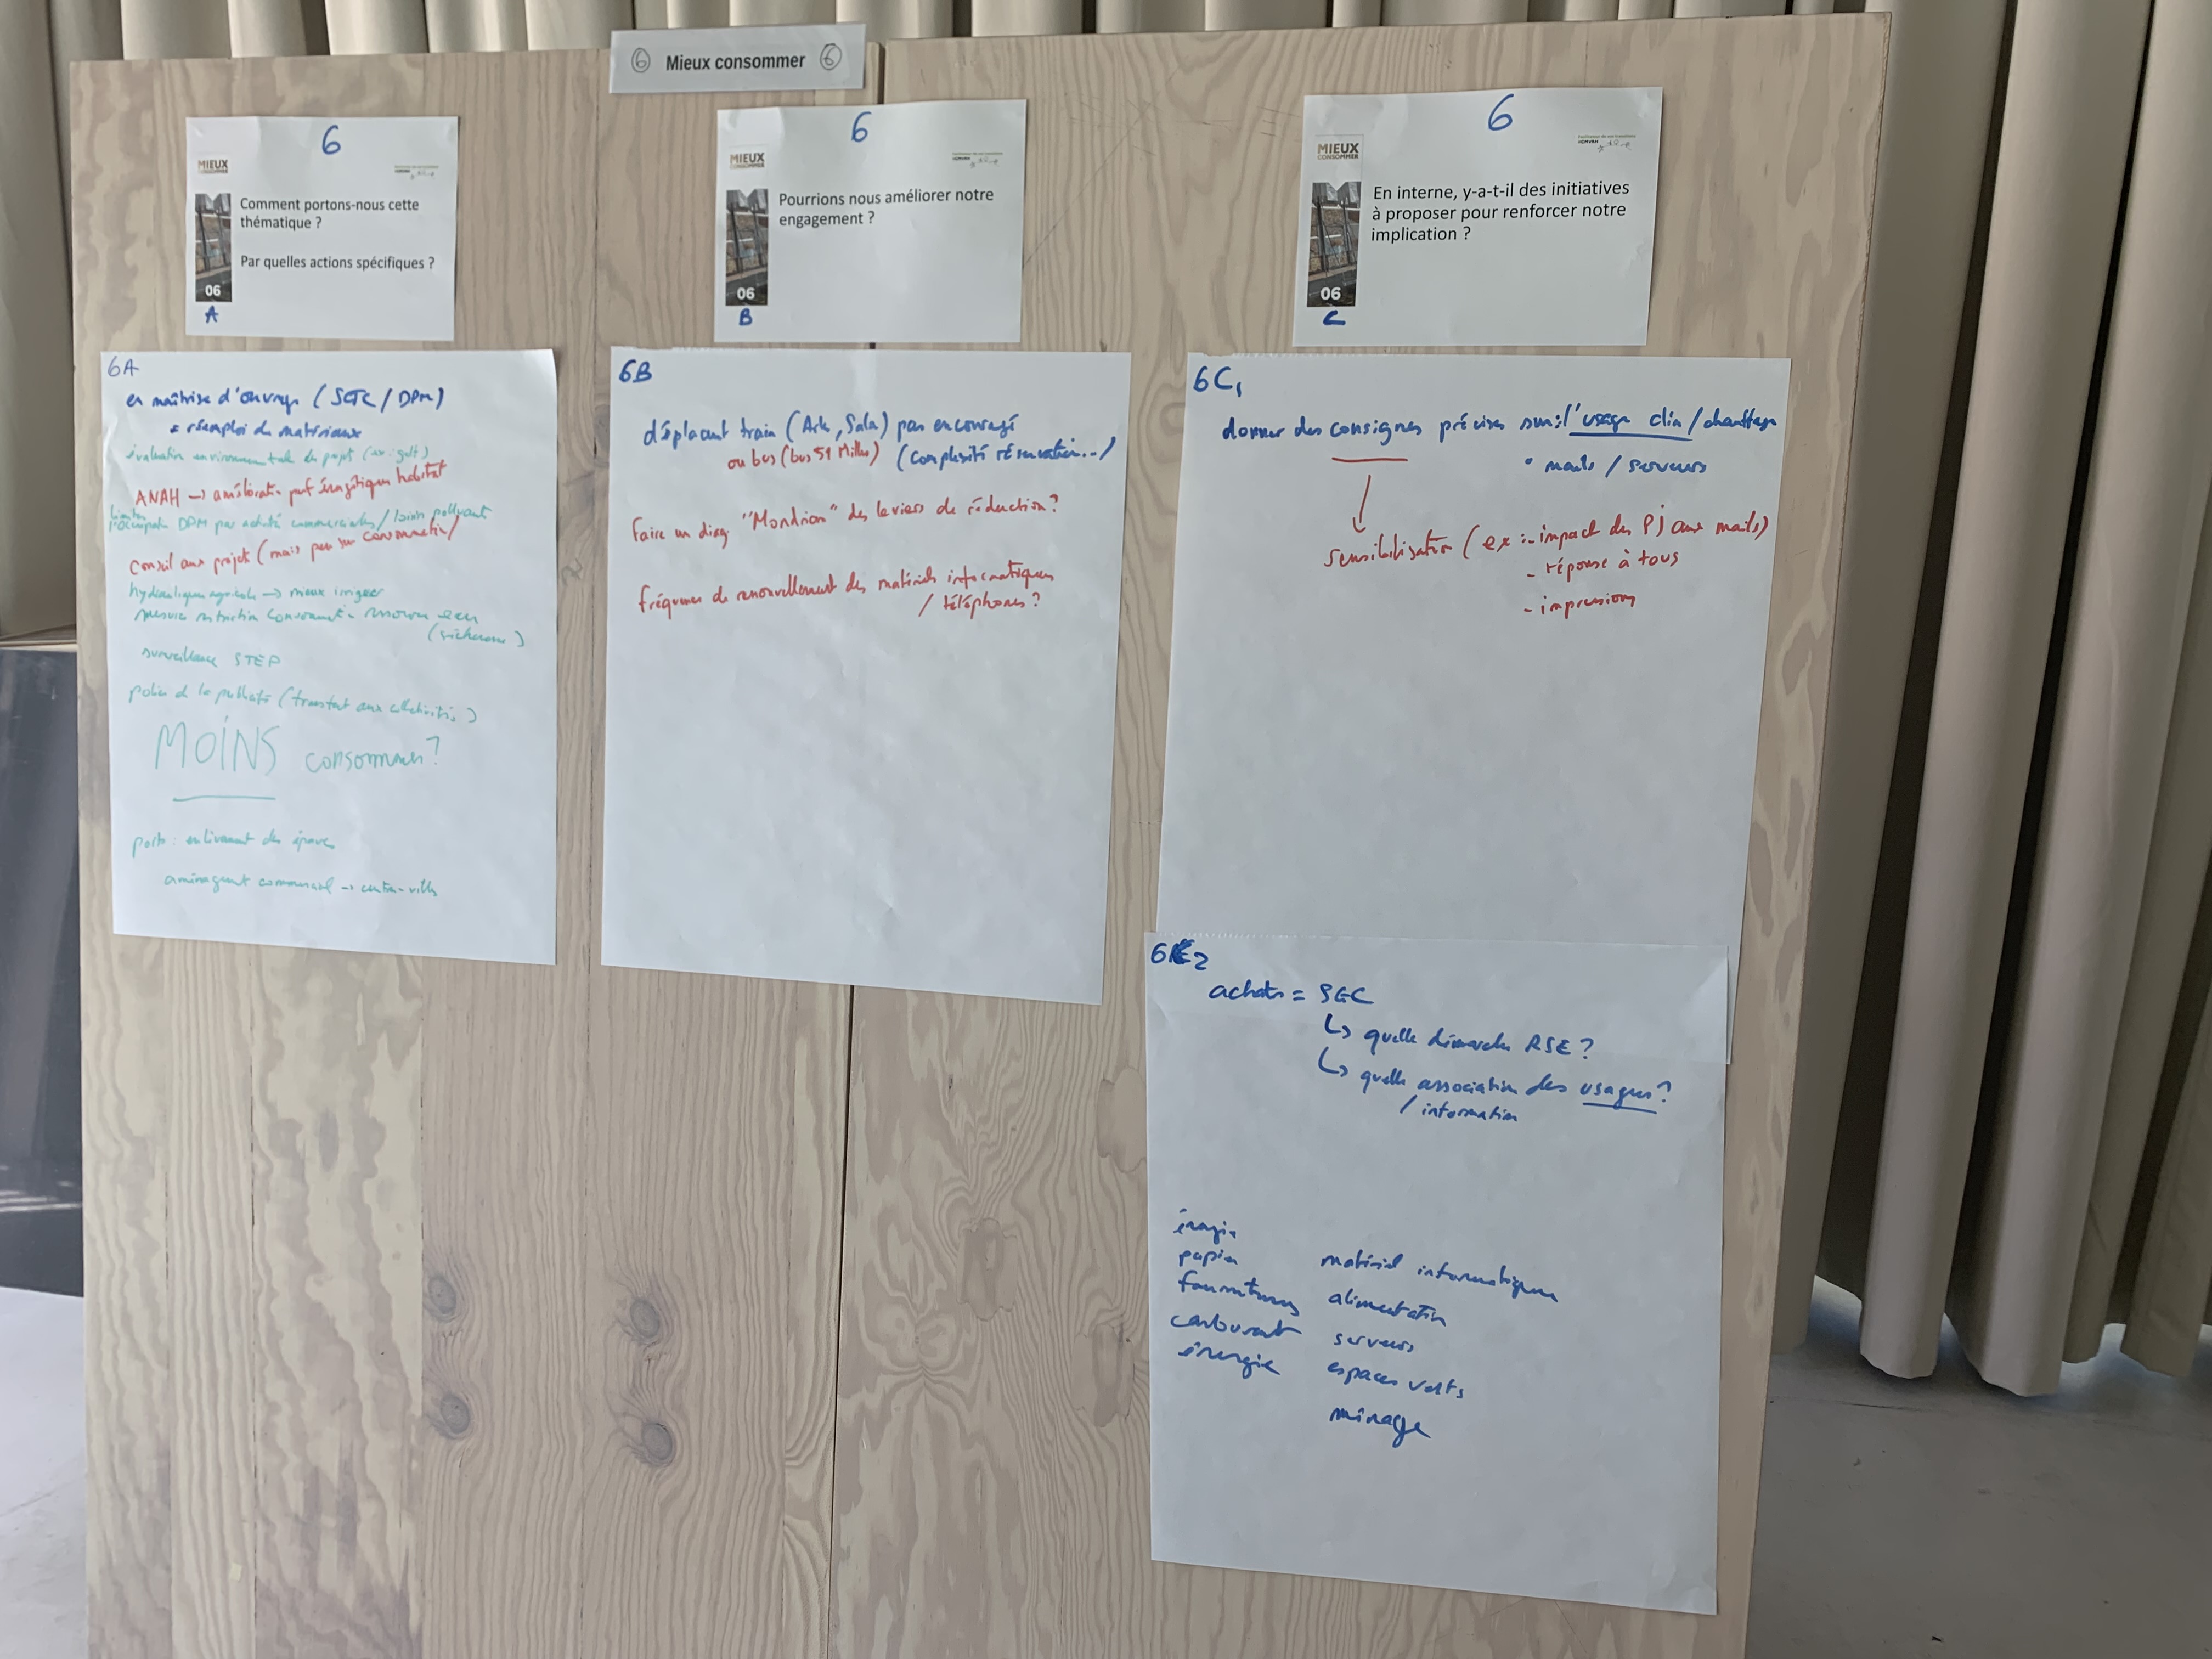 6 Mieux consommer 6
6
MIEUX
CONSOMMER
Comment portons-nous cette
thématique ?
Par quelles actions spécifiques ?
06
A
6A
en maîtrise d'ouvrage (SGTC / DPM)
réemploi de matériaux
évaluation environnementale de projet
ANAH → amélioration perf énergétique habitat
limiter
l'occupation DPM par activité commerciales / loisir polluant
conseil aux projet (mais peu sur consommation)
hydraulique agricole → mieux irriguer
mesure restriction consommat° ressource eau
(sécheresse)
surveillance STEP
police de la publicité (transfert aux collectivités)
MOINS consommer ?
ports : enlèvement des épaves
aménagement commercial → centre-villes
6
MIEUX
CONSOMMER
Pourrions nous améliorer notre
engagement ?
06
B
6B
déplacmt train (Arles, Salon) pas encouragé
ou bus (bus 51 Milles) (complexité réservation...)
Faire un diag "Mondrian" des leviers de réduction ?
fréquence de renouvellement des matériels informatiques
/ téléphones ?
6
MIEUX
CONSOMMER
En interne, y-a-t-il des initiatives
à proposer pour renforcer notre
implication ?
06
C
6C1
donner des consignes précises sur : l'usage clim / chauffage
• mails / serveurs
sensibilisation (ex :- impact des PJ aux mails)
- réponse à tous
- impressions
6C2
achats = SGC
↳ quelle démarche RSE ?
↳ quelle association des usagers ?
/ information
énergie
papier
fournitures
carburant
énergie
matériel informatique
alimentation
serveurs
espaces verts
ménage